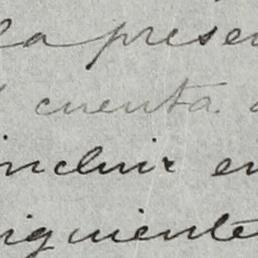 la presen
cuenta
incluir en
iguiente